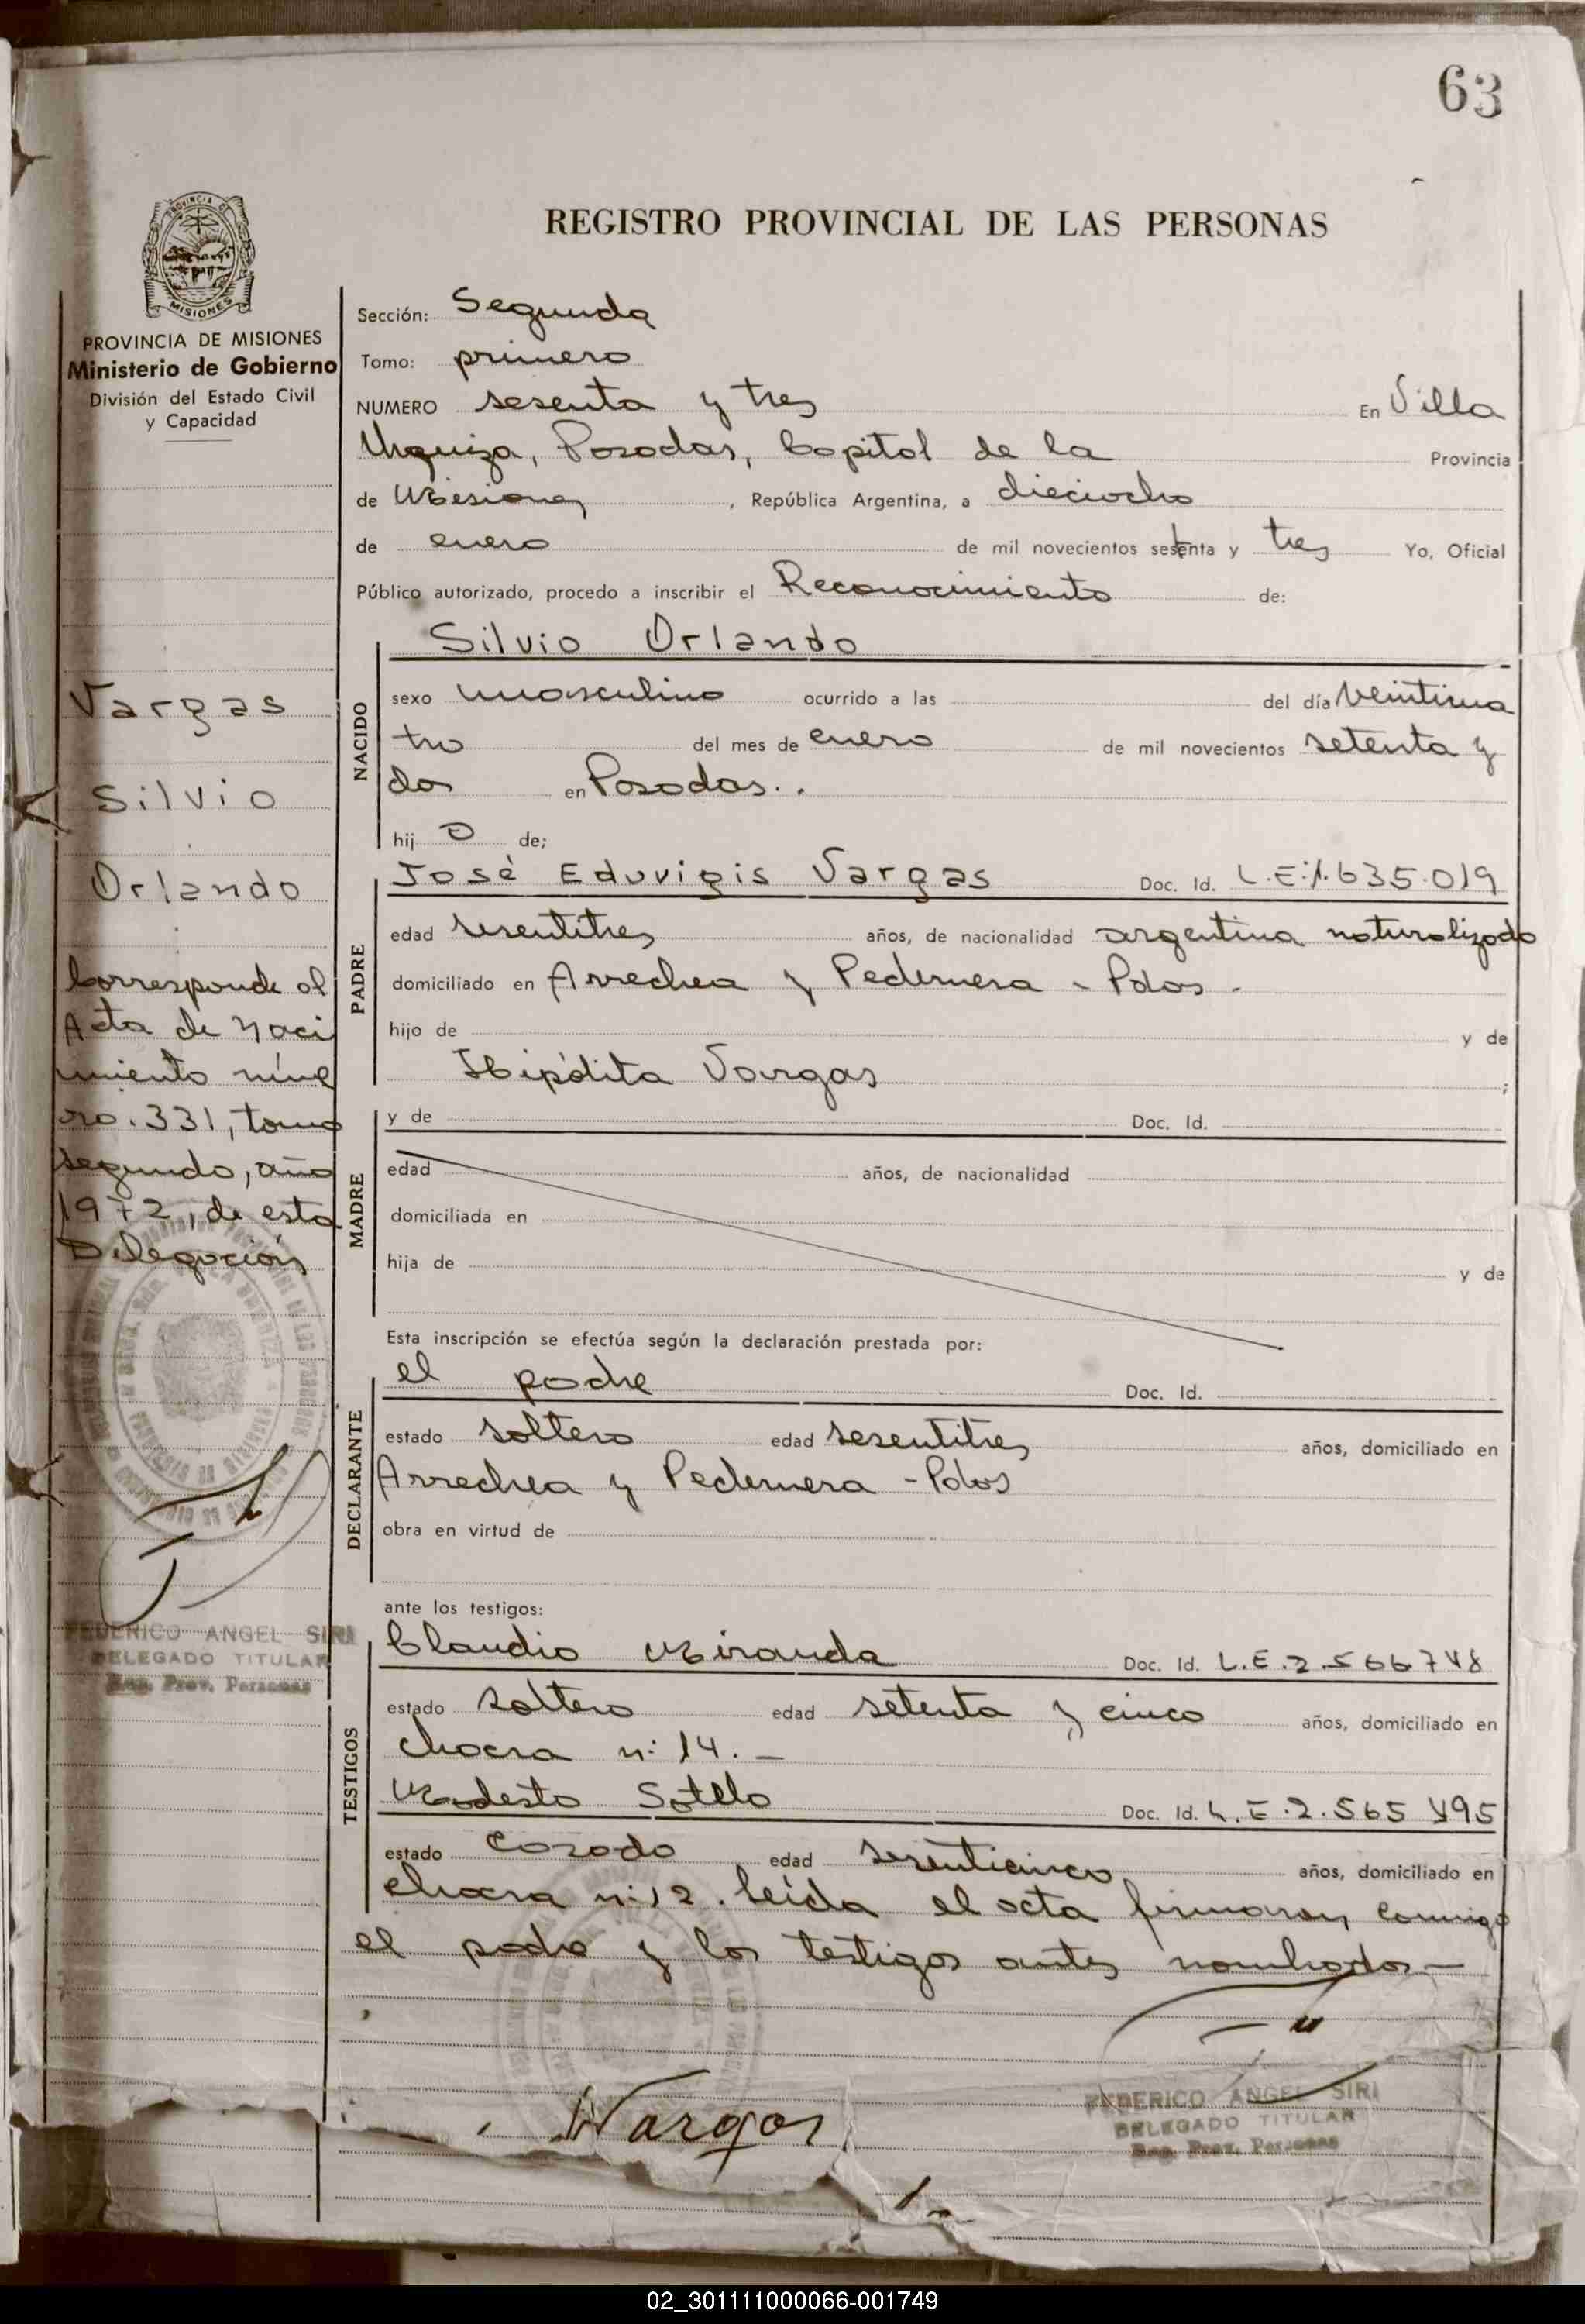 63
REGISTRO PROVINCIAL DE LAS PERSONAS
PROVINCIA DE MISIONES
MISIONES
PROVINCIA DE MISIONES
Ministerio de Gobierno
División del Estado Civil
y Capacidad
Vargas
Silvio
Orlando
Corresponde al
Acta de Naci
miento núme
ro. 331, tomo
segundo, año
1972, de esta
Delegación
FEDERICO ANGEL SIRI
DELEGADO TITULAR
Reg. Prov. Personas
Sección: Segunda
Tomo: primero
NUMERO sesenta y tres En Villa
Urquiza, Posadas, Capital de la Provincia
de Misiones, República Argentina, a dieciocho
de enero de mil novecientos setenta y tres Yo, Oficial
Público autorizado, procedo a inscribir el Reconocimiento de:
Silvio Orlando
NACIDO
sexo masculino ocurrido a las del día veinticua
tro del mes de enero de mil novecientos setenta y
dos en Posadas..
hij o de;
José Eduvigis Vargas Doc. Id. L.E:1.635.019
PADRE
edad sesentitres años, de nacionalidad argentina naturalizado
domiciliado en Arrechea y Pedernera - Pdas -
hijo de y de
Hipólita Vargas ;
MADRE
y de Doc. Id.
edad años, de nacionalidad
domiciliada en
hija de y de
Esta inscripción se efectúa según la declaración prestada por:
el padre Doc. Id.
DECLARANTE
estado soltero edad sesentitres años, domiciliado en
Arrechea y Pedernera - Pdas
obra en virtud de
ante los testigos:
Claudio Miranda Doc. Id. L.E.2.566748
TESTIGOS
estado soltero edad setenta y cinco años, domiciliado en
chacra n: 14. -
Modesto Sotelo Doc. Id. L.E.2.565 495
estado casado edad sesenticinco años, domiciliado en
chacra n:12. leída el acta firmaron conmigo
el padre y los testigos antes nombrados -
Vargas
FEDERICO ANGEL SIRI
DELEGADO TITULAR
Reg. Prov. Personas
02_301111000066-001749